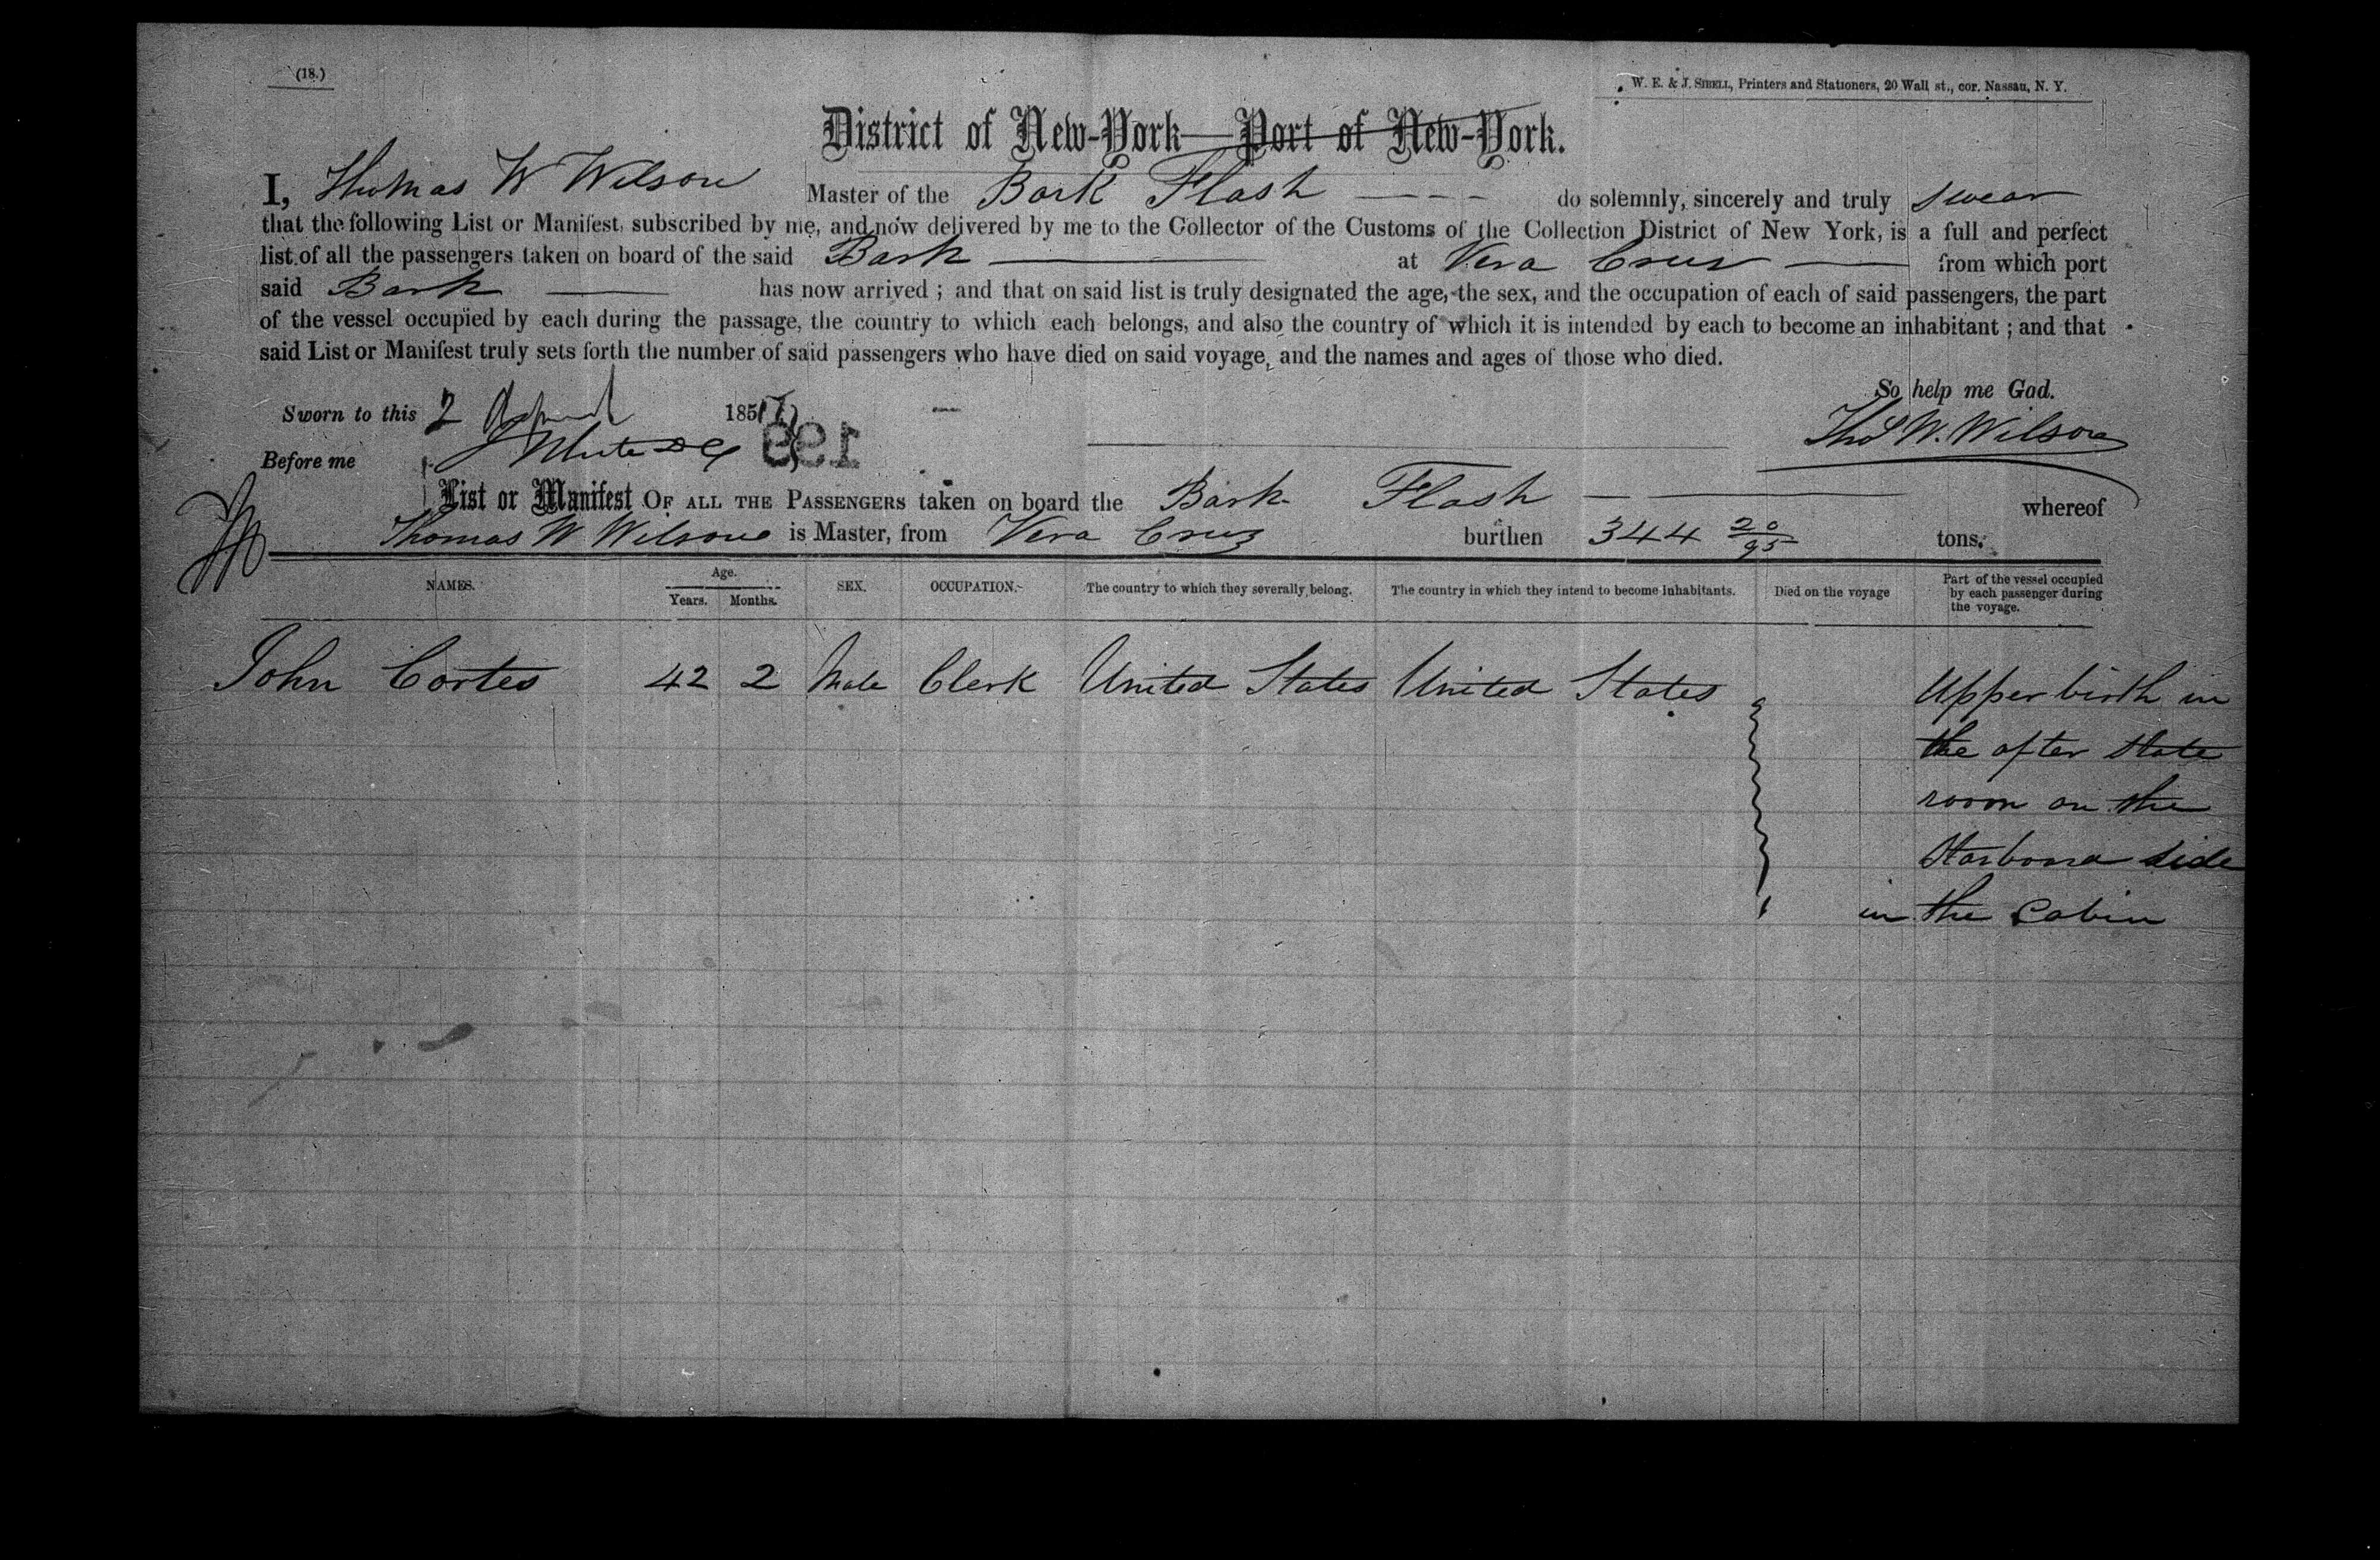 (18.)
W. E. & J. SIBELL, Printers and Stationers, 20 Wall st., cor. Nassau, N. Y.
District of New-York—Port of New-York.
I, Thomas W Wilson Master of the Bark Flash do solemnly, sincerely and truly swear
that the following List or Manifest, subscribed by me, and now delivered by me to the Collector of the Customs of the Collection District of New York, is a full and perfect
list of all the passengers taken on board of the said Bark at Vera Cruz from which port
said Bark has now arrived ; and that on said list is truly designated the age, the sex, and the occupation of each of said passengers, the part
of the vessel occupied by each during the passage, the country to which each belongs, and also the country of which it is intended by each to become an inhabitant ; and that
said List or Manifest truly sets forth the number of said passengers who have died on said voyage, and the names and ages of those who died.
So help me God.
Sworn to this 2 April 1857
Thos W. Wilson
199
Before me
List or Manifest OF ALL THE PASSENGERS taken on board the Bark Flash whereof
Thomas W Wilson is Master, from Vera Cruz burthen 344 20/95 tons.
NAMES. Age. Years. Months. SEX. OCCUPATION. The country to which they severally belong. The country in which they intend to become Inhabitants. Died on the voyage Part of the vessel occupied by each passenger during the voyage.
John Cortes 42 2 Male Clerk United States United States Upper birth in
the after state
room on the
Starboard side
in the Cabin